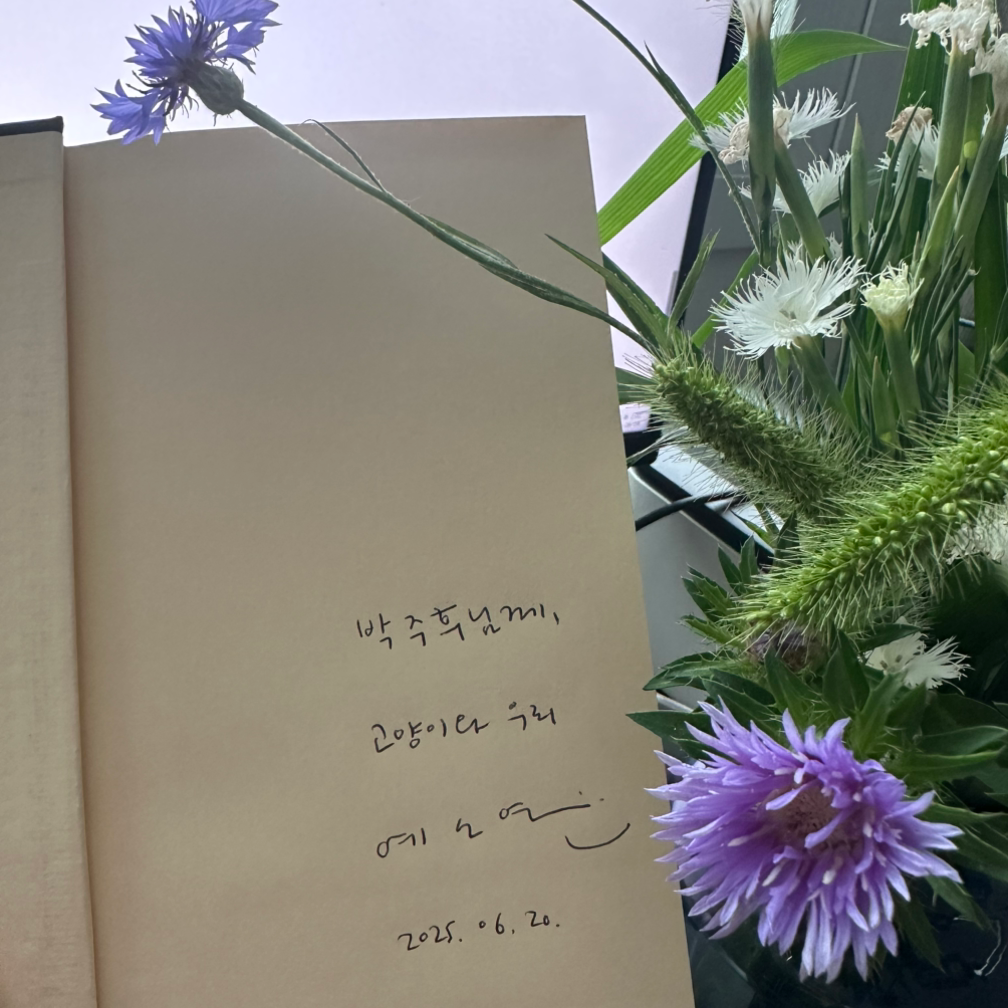 박주혹님께,
고양이와 우리
예소연
2025. 06. 20.